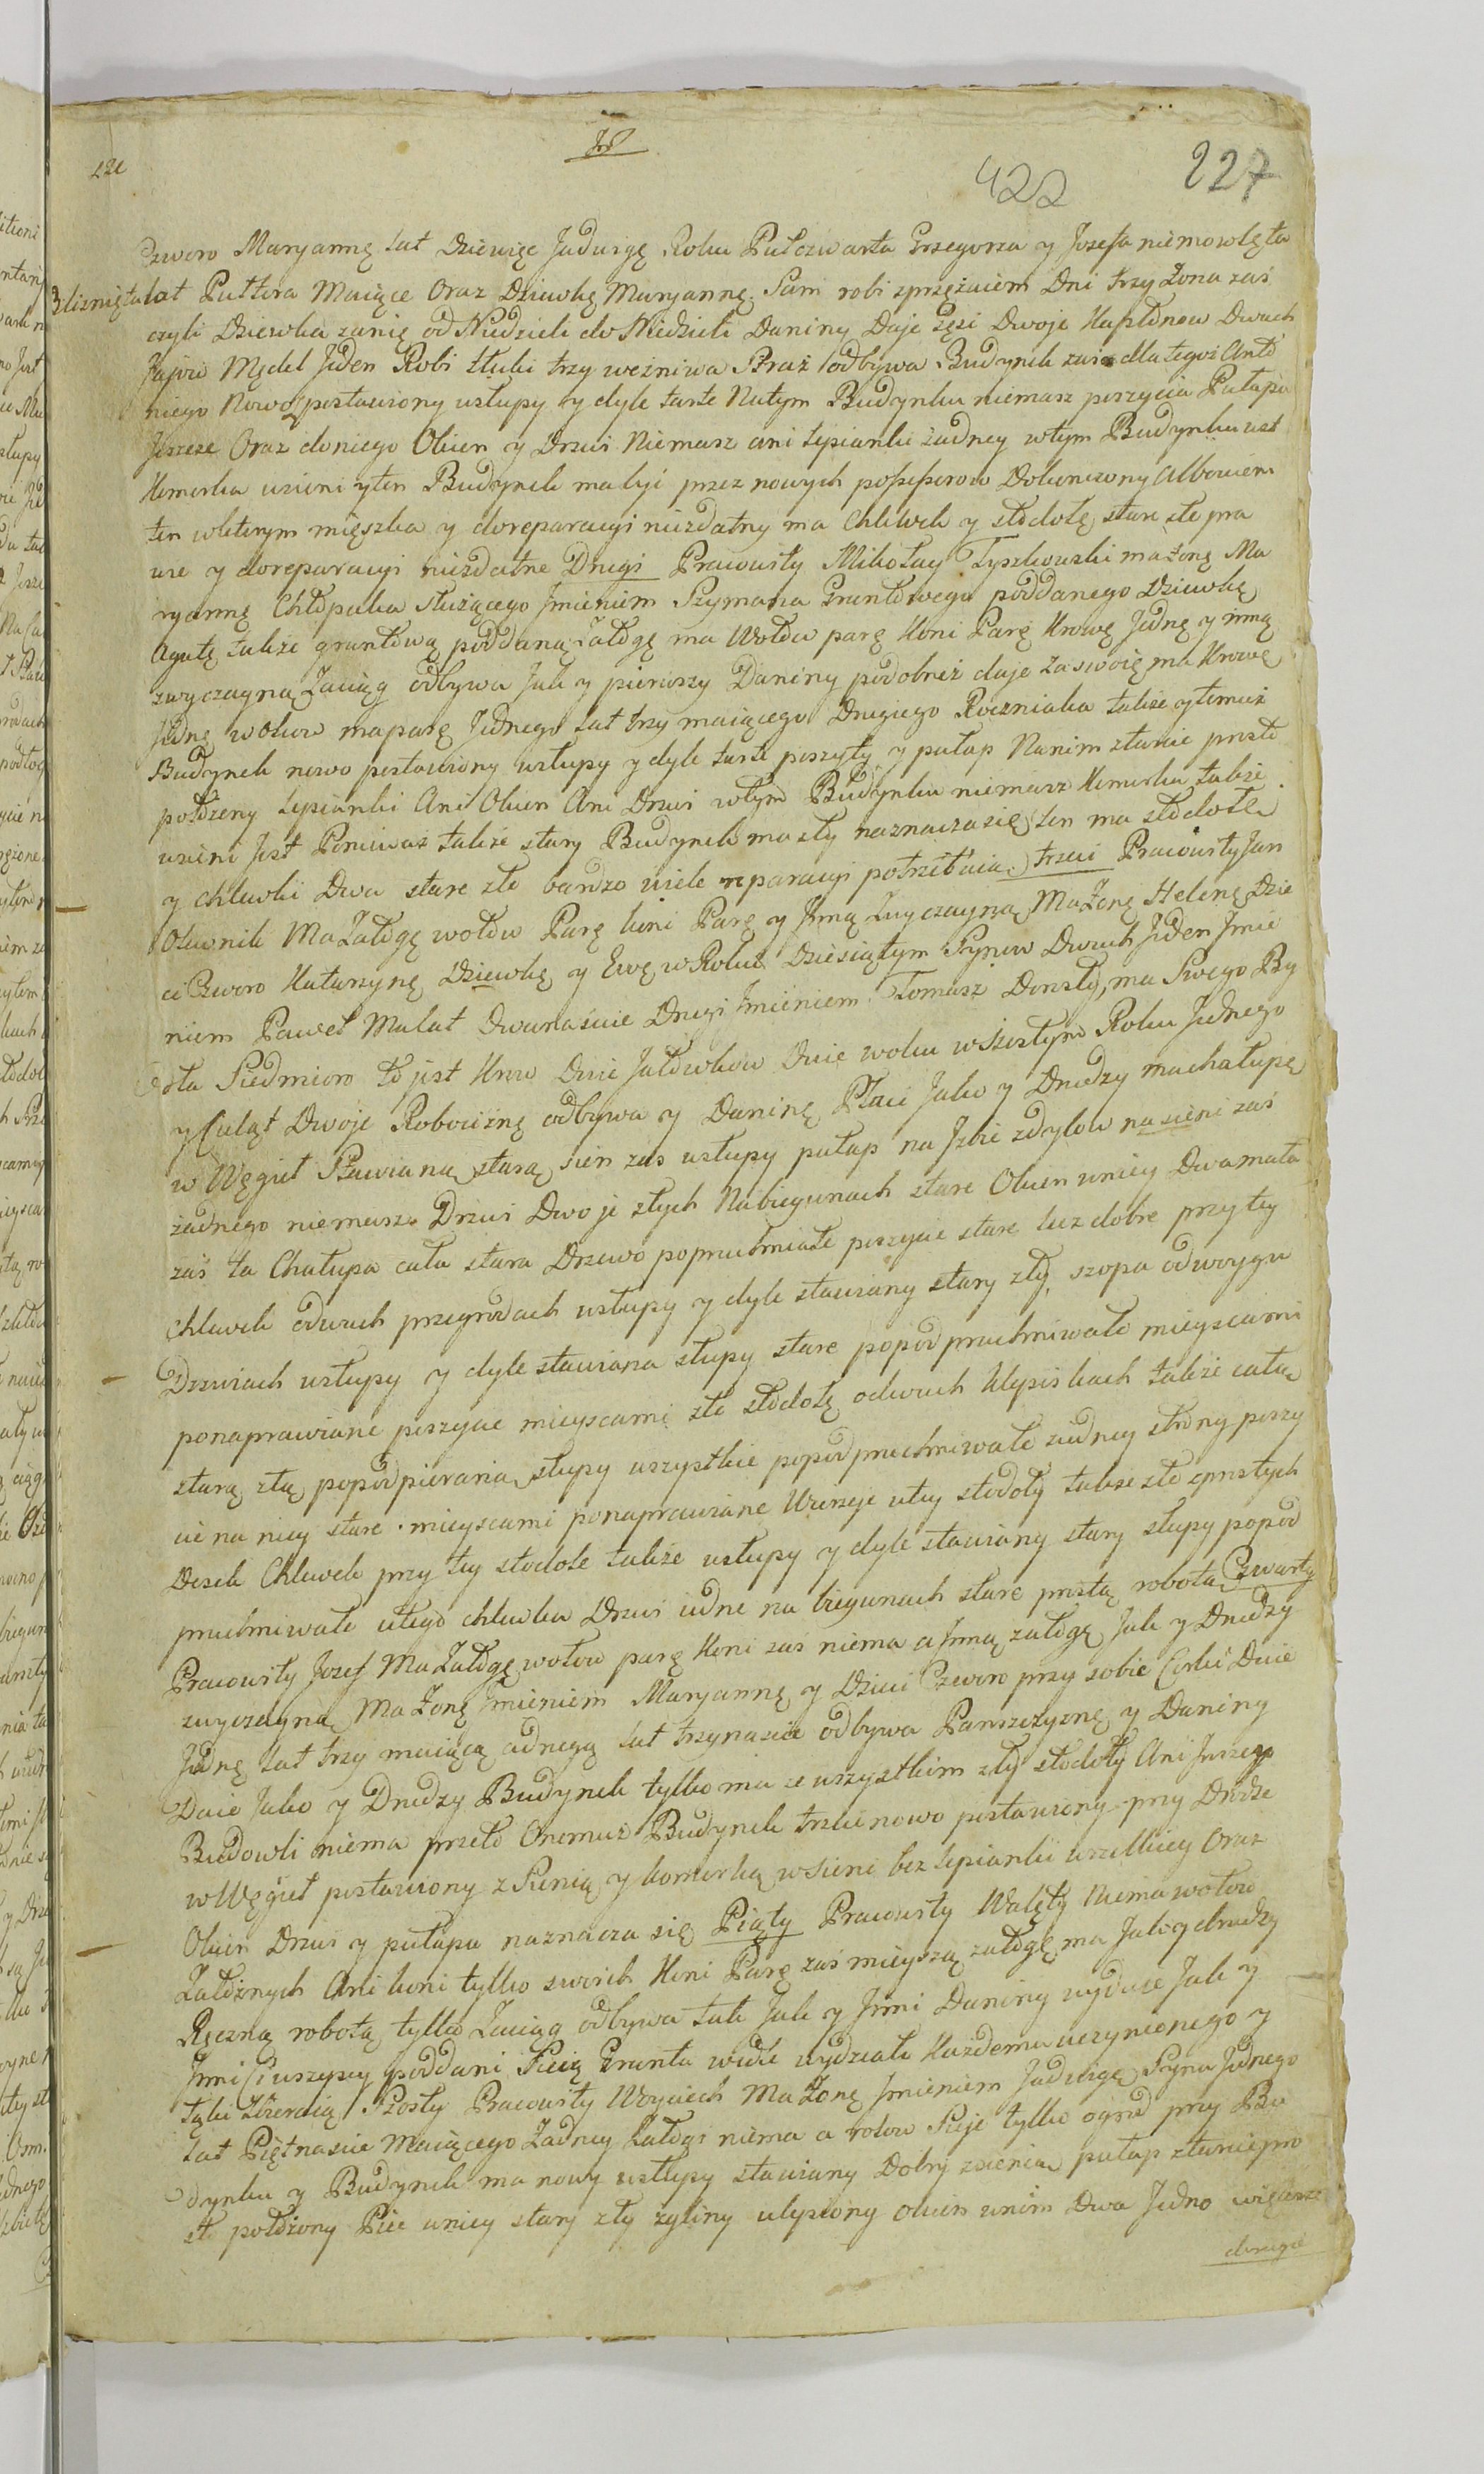 422
227
czworo Maryannę lat Dziewięc Jadwigę Roku Pułczwarta Grzegorza y Jozefa niemowlęta
Bliznięta lat Pułtora Maiące Oraz Dziewkę Maryannę. Sam robi zprzężaiem Dni trzy Zona zaś
czyli Dziewka zanię od Niedzieli do Niedzieli Daniny Daje Gęsi Dwoje Kapłonow Dwuch
Jajow Mędel Jeden Robi tłuki trzy weżniwa Straż odbywa Budynek zaś dla tegoż Anto
niego Nowo postawiony wsłupy y dyle tarte Natym Budynku niemasz poszycia Pułapu
Jeszcze Oraz doniego Okien y Drzwi Niemasz ani lepianki żadney wtym Budynku jest
Komorka wsieni yten Budynek ma być przez nowych possessorow Dokonczony Albowiem
ten wktorym mięszka y doreparacyi niezdatny ma Chlewek y stodołę stare złe pra
wie y doreparacyi niezdatne Drugi Pracowity Mikołay Tyszkowski ma żonę Ma
ryannę Chłopaka służącego Jmieniem Szymana Gruntowego poddanego Dziewkę
Agatę także gruntową poddaną załogę ma Wołow parę Koni Parę Krowę Jednę y inną
zwyczayną Zaciąg odbywa Jak y pierwszy Daniny podobnież daje Zaswoię ma Krowę
Jednę wołow maparę Jednego lat trzy maiącego Drugiego Roczniaka także ytemuż
Budynek nowo postawiony wsłupy y dyle tarte poszyty y pułap Nanim ztarcic prosto
położony lepianki Ani Okien Ani Drzwi wtym Budynku niemasz Komorka także
wsieni Jest Poniewaz także stary Budynek ma zły naznacza się ten ma stodołę
y chlewki Dwa stare złe bardzo wiele reparacyi potrzebuia trzeci Pracowity Jan
Oławnik Ma Załogę wołow Parę koni Parę y Jnną Zwyczayną Ma Zonę Helenę Dzie
ci Czworo Katarzynę Dziewkę y Ewę w Roku Dziesiątym Synow Dwuch Jeden Jmie
niem Paweł Malat Dwanascie Drugi Jmieniem Tomasz Dorosły, ma Swego By
dła Siedmioro to jest Krow Dwie Jałowkow Dwie wołu wszostym Roku Jednego
y Cieląt Dwoje Robociznę odbywa y Daninę Płaci Jako y Drudzy machałupę
w Węgieł Stawianą starą sien zas wsłupy pułap na Jzbie zdylow nasieni zaś
żadnego niemasz. Drzwi Dwoje złych Nabiegunach stare Okien wniey Dwamała
zaś ta Chałupa cała stara Drzewo poprochniałe poszycie stare lecz dobre przy tey
Chlewek odwuch przegrodach wsłupy y dyle stawiany stary zły, szopa odwoygu
Drzwiach wsłupy y dyle stawiana słupy stare popodpruchniwałe mieyscami
ponaprawiane poszycie mieyscami złe stodołę odwuch klepiskach także cału
starą złą popodpieraną słupy wszystkie popodpruchniwałe ziedney strony poszy
cie na niey stare mieyscami ponaprawiane Wierzeje utey stodoły także złe zprostych
Desek Chlewek przy tey stodole także wsłupy y dyle stawiany stary słupy popod
pruchniwałe utego chlewka Drzwi iedne na biegunach stare prostą robotą Czwarty
Pracowity Jozef Ma Załogę wołow parę Koni zaś niema a Jnną załogę Jak y Drudzy
zwyczayną Ma Zonę Jmieniem Maryannę y Dzieci Czworo przy sobie Corki Dwie
Jednę lat trzy maiącą adrugą lat trzynascie odbywa Panszczyznę y Daniny
Daie Jako y Drudzy Budynek tylko ma ze wszystkim zły stodoły Ani Jnszego
Budowli niema przeto Onemuz Budynek trzeci nowo postawiony przy Drodze
w Węgieł postawiony z Sienią y komorką wsieni bez lepianki wszelkiey Oraz
Okien Drzwi y pułapu naznacza się Piąty Pracowity Walęty Niema wołow
Założnych Ani koni tylko swoich Koni Parę zaś mieyszą załogę ma Jako y drudzy
Ręczną robotą tylko Zaciąg odbywa tak Jak y Jnni Daniny wydaie Jak y
Jnni Ci wszyscy poddani Sieią Grunta wedle wydziału Każdemu uczynionego y
Szosty Pracowity Woyciech Ma Zonę Jmieniem Jadwigę Syna Jednego
lat Piętnascie Maiącego Zadney Załogi niema a rolow Sieje tylko ogrod przy Bu
dynku y Budynek ma nowy wsłupy stawiany Dobry zsienią pułap ztarcic pro
sto położony Piec wniey stary zły zgliny ulepiony okien wnim Dwa Jedno większe
drugie